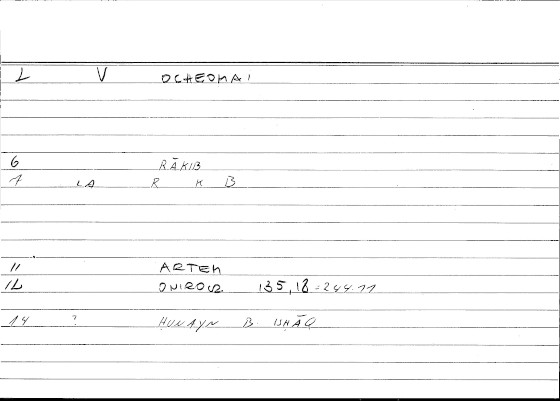 2 V OCHEOMAI
6 RĀKIB
7 LA R K B
11 ARTEM
12 ONIROCR 135,18=244.11
14 ? HUNAYN B. ISHĀQ